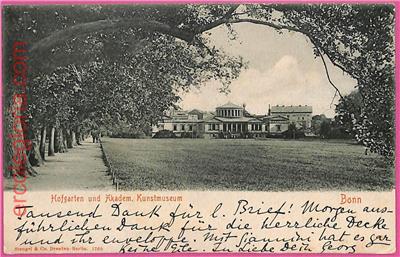 Hofgarten und Akadem. Kunstmuseum
Bonn
Tausend Dank für l. Brief! Morgen aus-
führlichen Dank für die herrliche Decke
und ihr enveloppe. Mit Giannini hat es gar
keine Eile. In Liebe Dein Georg
Stengel & Co. Dresden-Berlin. 1765